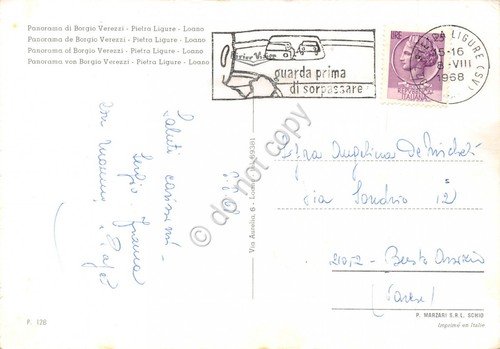 Panorama di Borgio Verezzi - Pietra Ligure - Loano
Panorama de Borgio Verezzi - Pietra Ligure - Loano
Panorama of Borgio Verezzi - Pietra Ligure - Loano
Panorama von Borgio Verezzi - Pietra Ligure - Loano
guarda prima
di sorpassare
LIRE 25
LIGURE (SV)
15-16
8-VIII
1968
ITALIANA
Saluti carissimi
Sergio
do not copy
Via Aurelia, 6 - Loano
Angelina De Micheli
Via Sondrio 12
21052 - Busto Arsizio
(Varese)
P. 128
P. MARZARI S.R.L. SCHIO
Imprimé en Italie